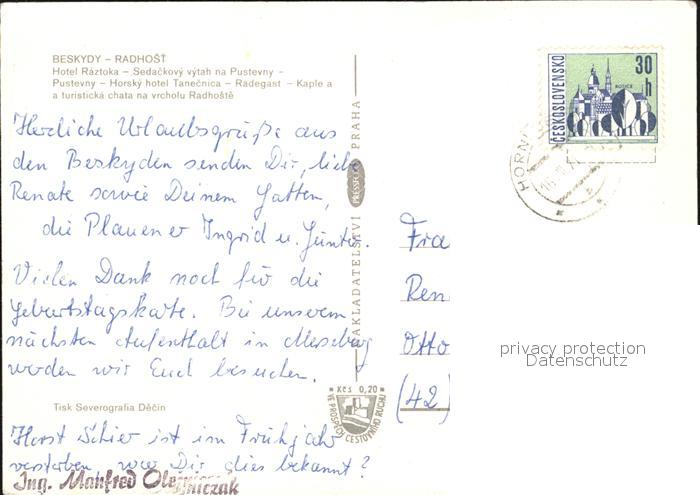 BESKYDY – RADHOŠŤ
Hotel Ráztoka – Sedačkový výtah na Pustevny –
Pustevny – Horský hotel Tanečnica – Radegast – Kaple a
a turistická chata na vrcholu Radhoště
Herzliche Urlaubsgrüße aus
den Beskyden senden Dir, liebe
Renate sowie Deinem Gatten,
die Plauener Ingrid u. Günter.
Vielen Dank noch für die
Geburtstagskarte. Bei unserem
nächsten Aufenthalt in Merseburg
werden wir Euch besuchen.
Tisk Severografia Děčín
Horst Schier ist im Frühjahr
verstorben, war Dir dies bekannt?
Ing. Manfred
NAKLADATELSTVÍ PRESSFOTO PRAHA
Kčs 0,20
VE PROSPĚCH CESTOVNÍHO RUCHU
ČESKOSLOVENSKO
30 h
KOŠICE
HORNÍ
Fra
Ren
Otto
(42)
privacy protection
Datenschutz